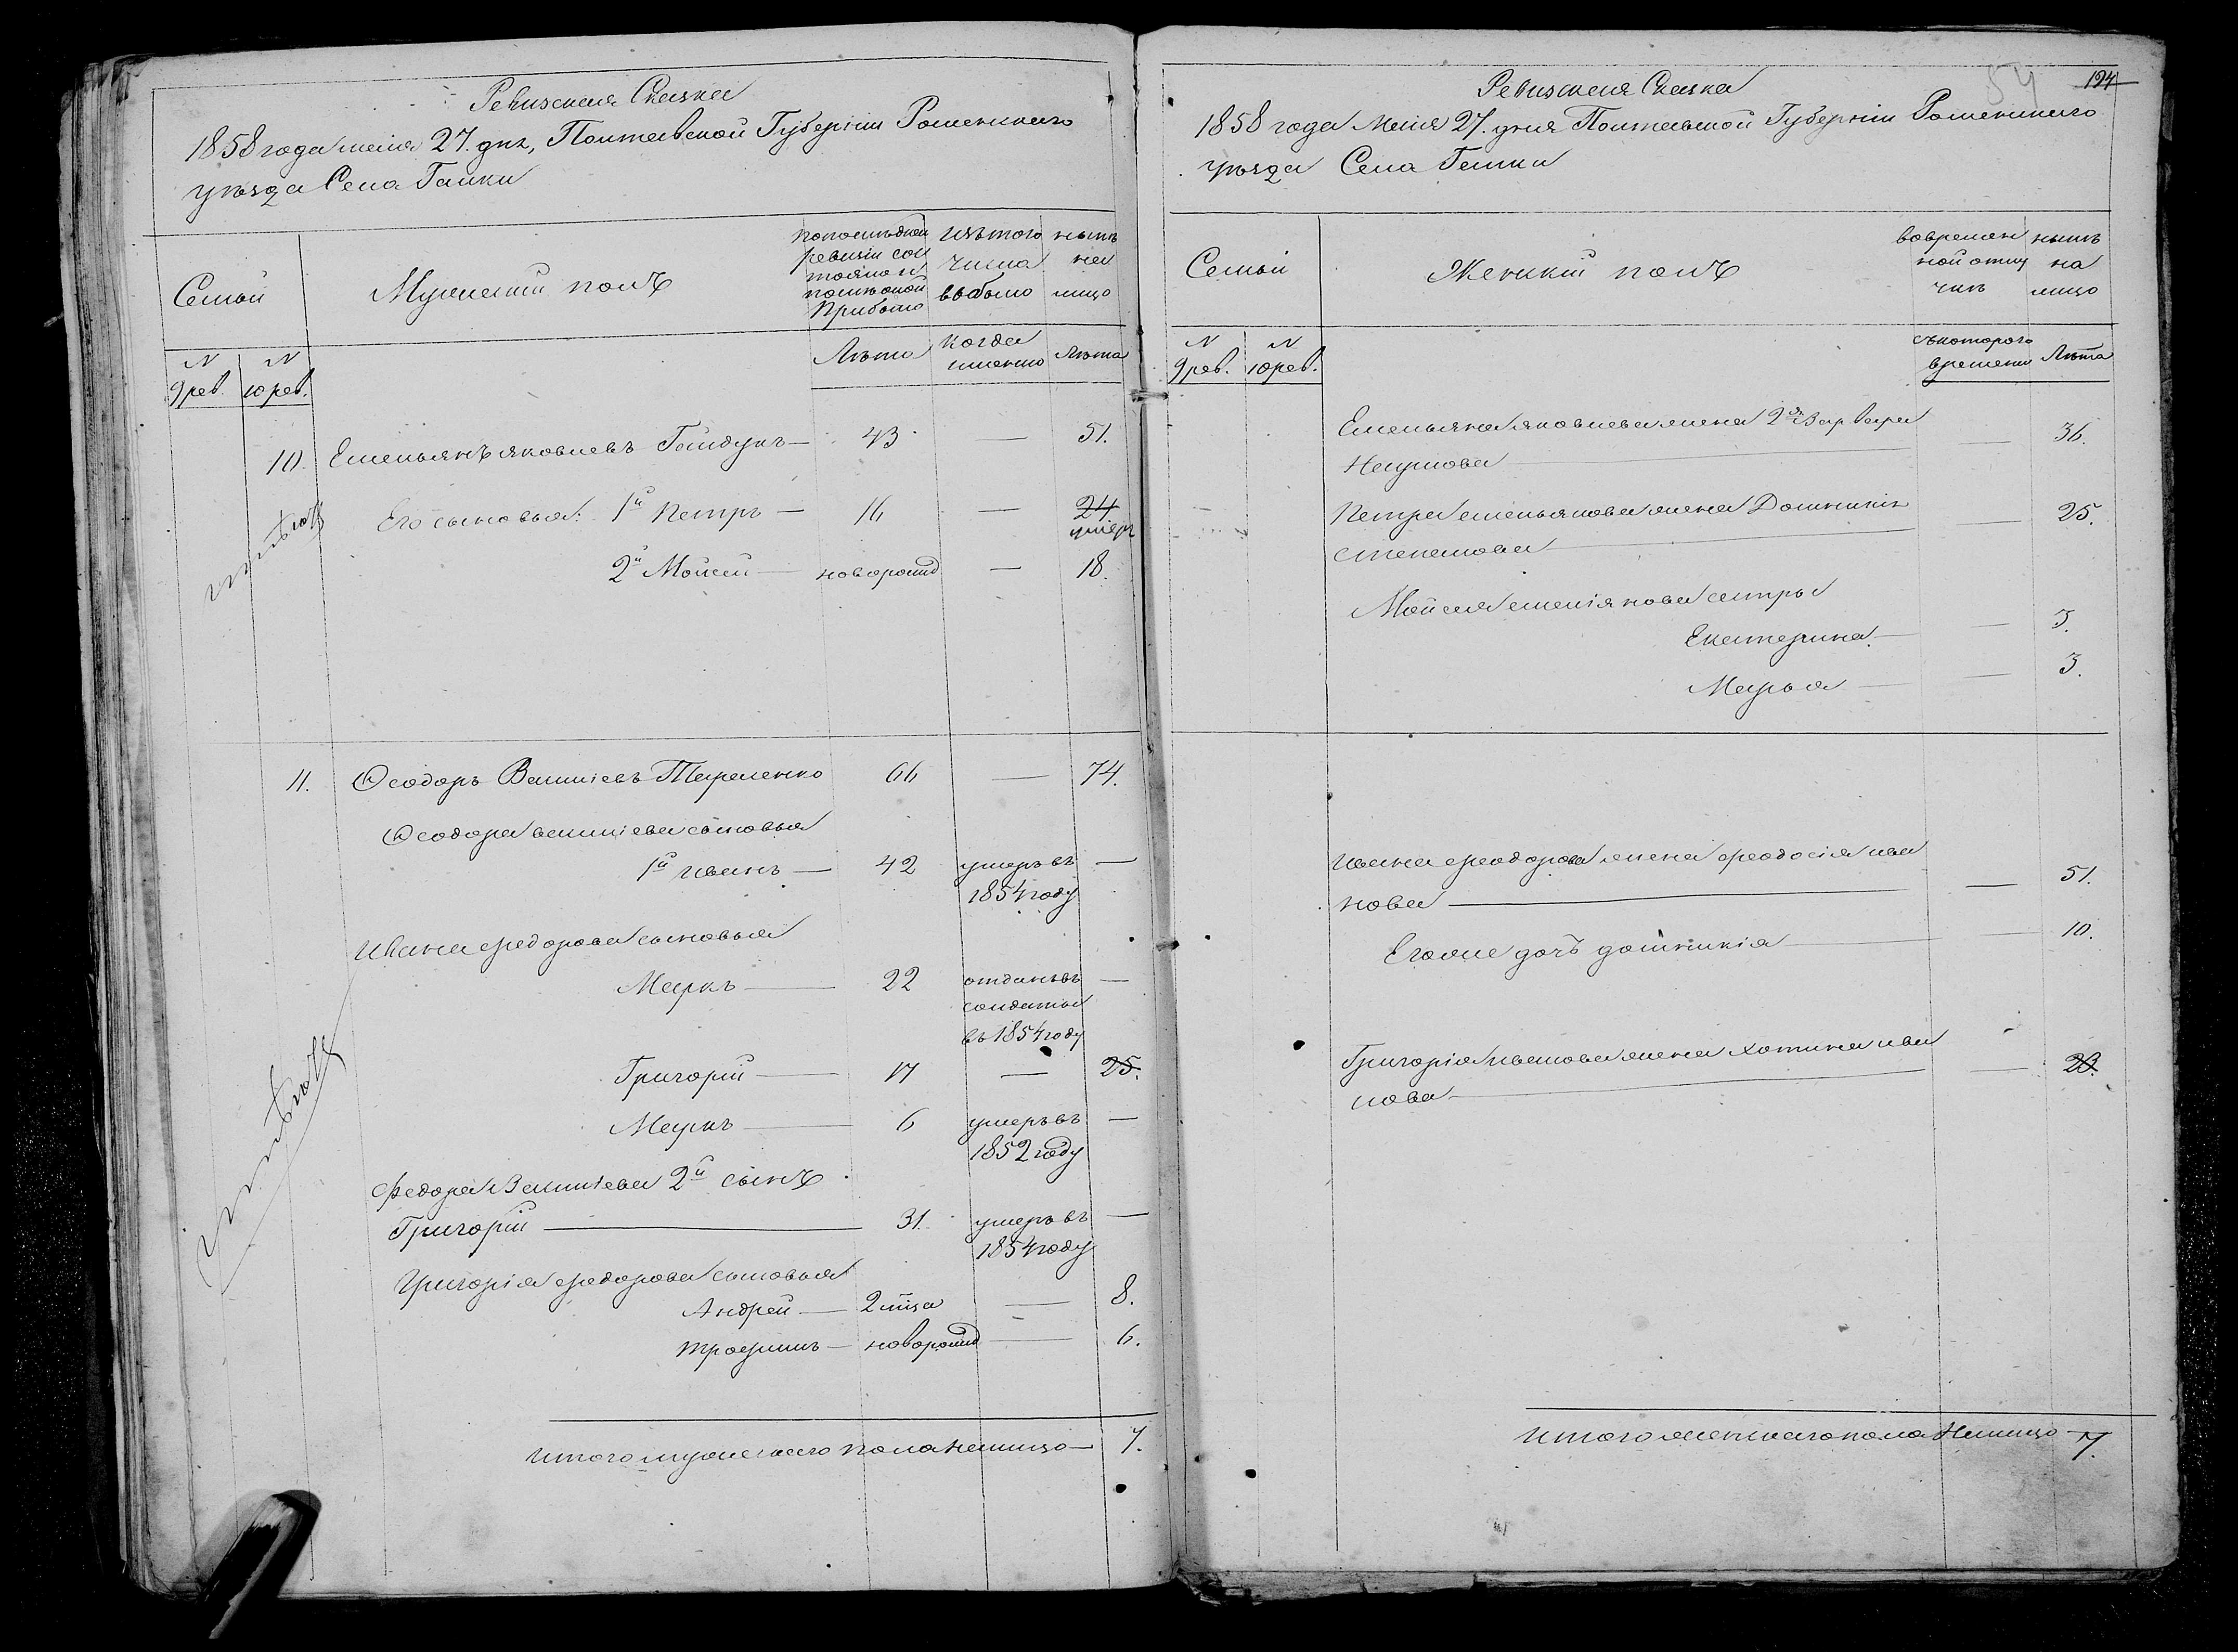 Ревизская Сказка
1858 года мaiя 27. дня, Полтавской Губернiи Роменскаго
уѣзда Села Галки
Семьи
Мужеский полъ
по последней
ревизiи сос
тояло и
после оной
прибыло
изъ того
числа
выбыло
нынѣ
на
лицо
N
9 рев.
N
10 рев.
Лѣта
когда
именно
Лѣта
10. Емельянъ яковлевъ Гайдукъ — 43 — 51.
Его сыновья: 1й Петръ — 16 — 24
умеръ
2й Мойсей — новорожд — 18.
11. Ѳеодоръ Василiевъ Тараненко 66 — 74.
Ѳеодора василiева сыновья
1й иванъ — 42 умеръ въ —
1854 году
Ивана федорова сыновья
Маркъ — 22 отданъ въ —
солдаты
въ 1854 году
Григорiй — 17 — 25.
Маркъ — 6 умеръ въ —
1852 году
Федора Василiева 2й сынъ
Григорiй — 31. умеръ въ —
1854 году
Григорiя федорова сыновья
Андрей — 2 мца — 8.
трофимъ — новорожд — 6.
итого мужескаго пола налицо — 7.
54
194
Ревизская Сказка
1858 года Маiя 27. дня Полтавской Губернiи Роменскаго
уѣзда Села Галки
Семьи
Женский полъ
во времен
ной отлу
чкѣ
нынѣ
на
лицо
N
9 рев.
N
10 рев.
съ котораго
времени
Лѣта
Емельяна яковлева жена 2я Варвара
Наумова — 36.
Петра емельянова жена Домникiя
степанова — 25.
Мойсея емелiянова сестры
Екатерина — 3.
Марья — 3.
Ивана феодорова жена феодосiя ива
нова — 51.
Его же дочъ домникiя — 10.
Григорiя Иванова жена хотина ива
нова — 23.
итого женскаго пола Налицо — 7.